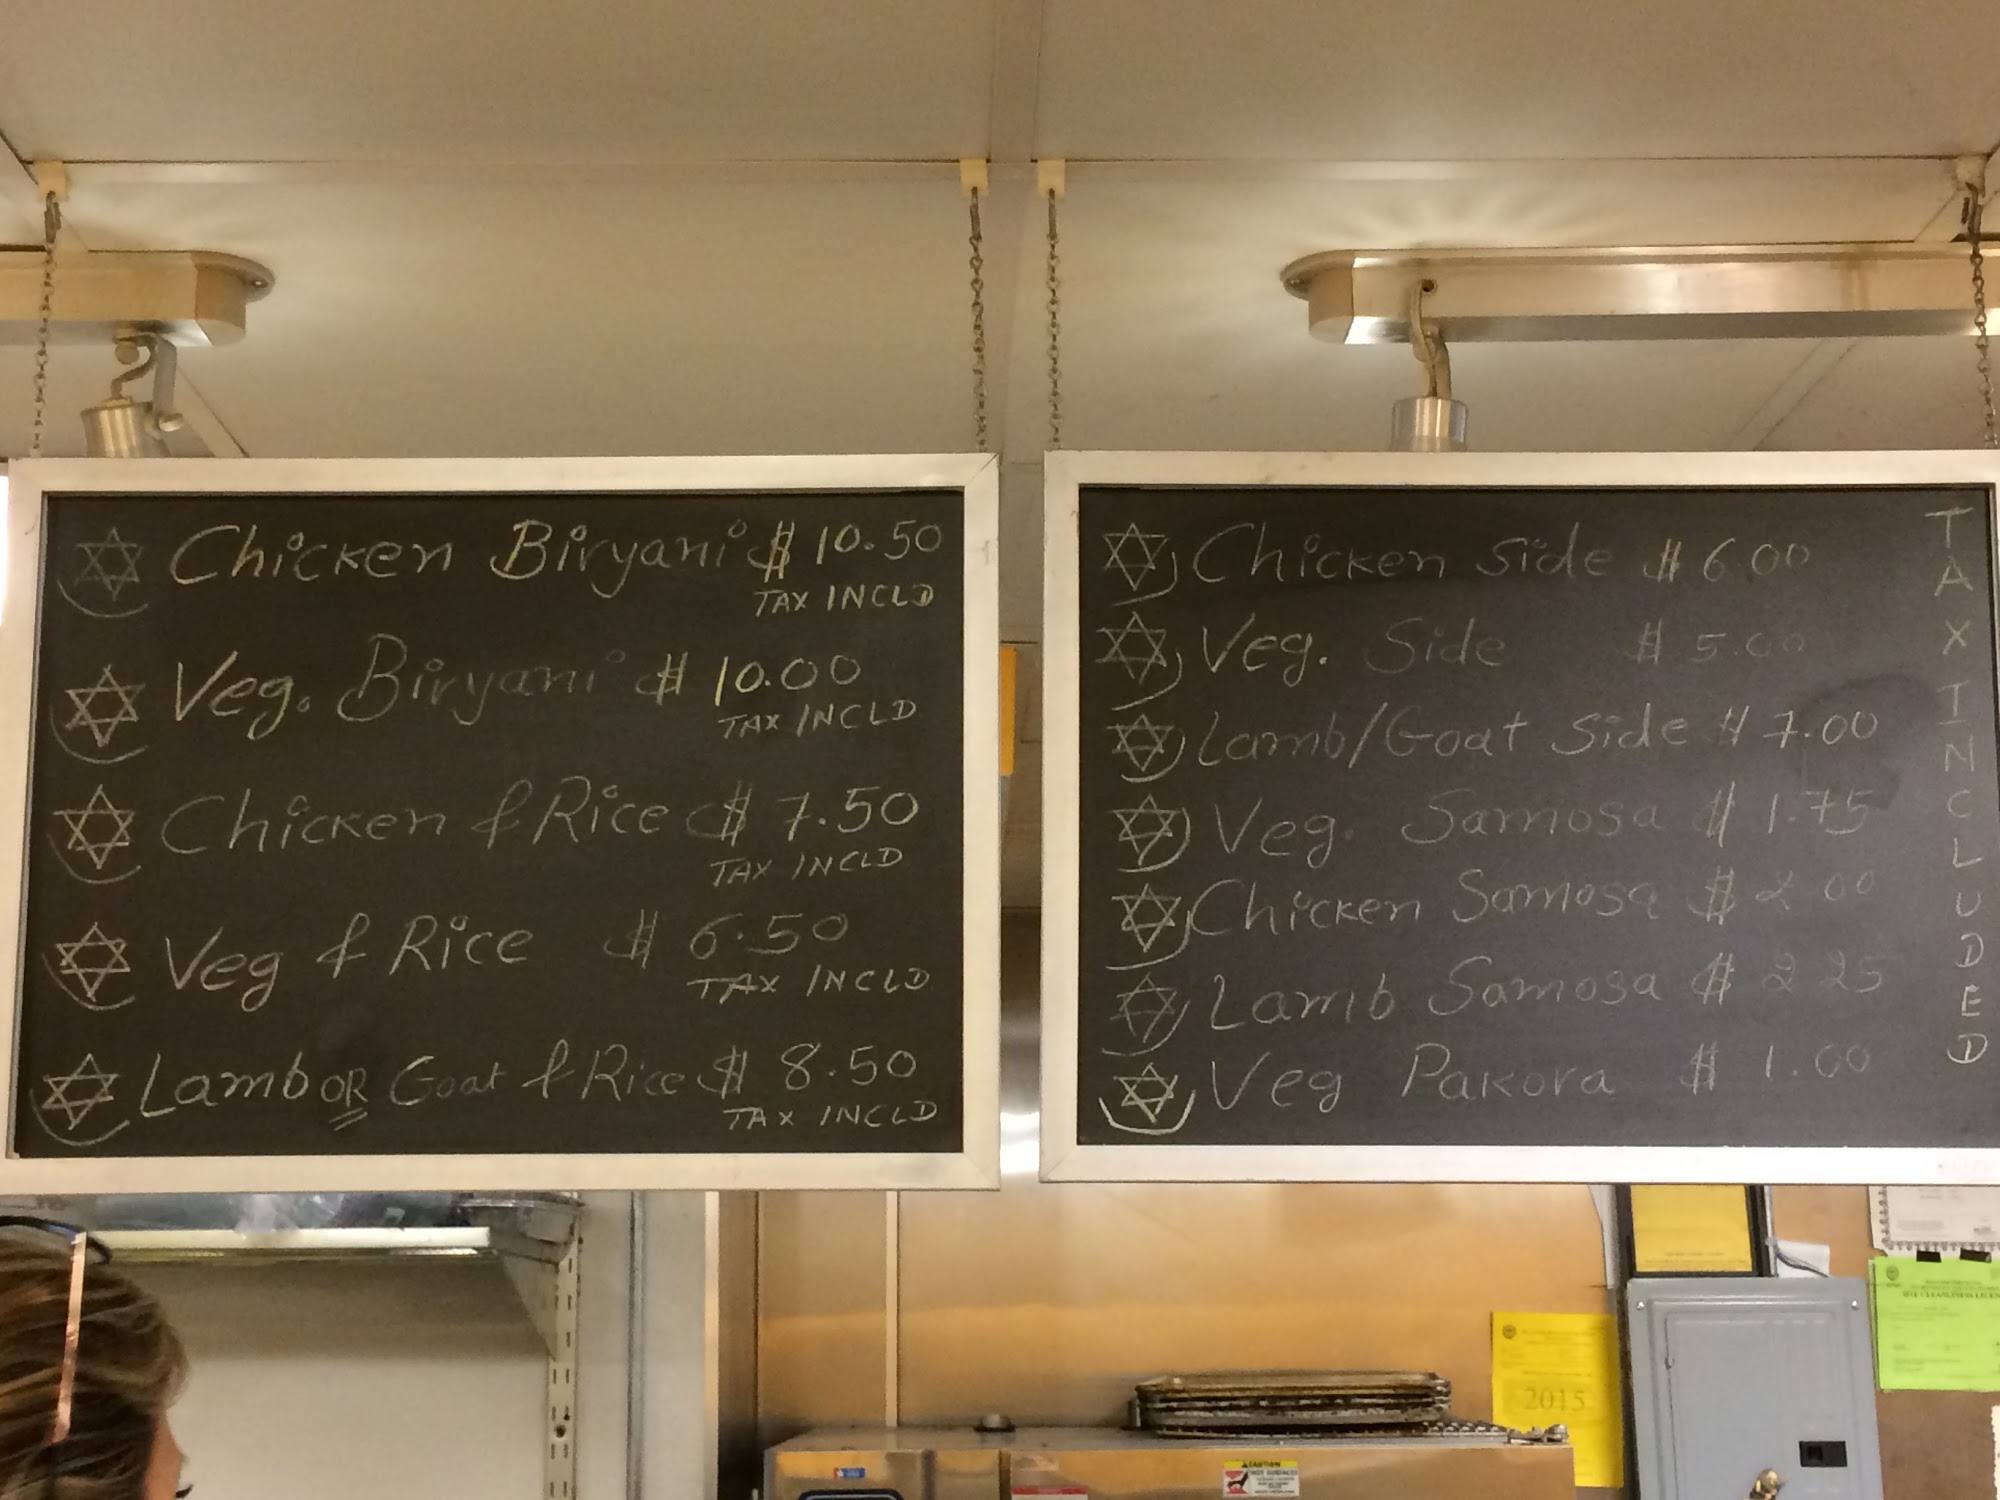 Chicken Biryani $ 10.50
TAX INCLD
Veg. Biryani $ 10.00
TAX INCLD
Chicken & Rice $ 7.50
TAX INCLD
Veg & Rice $ 6.50
TAX INCLD
Lamb OR Goat & Rice $ 8.50
TAX INCLD
Chicken Side $ 6.00
Veg. Side $ 5.00
Lamb/Goat Side $ 7.00
Veg. Samosa $ 1.75
Chicken Samosa $ 2.00
Lamb Samosa $ 2.25
Veg Pakora $ 1.00
TAX INCLUDED
2015
CAUTION
HOT SURFACES